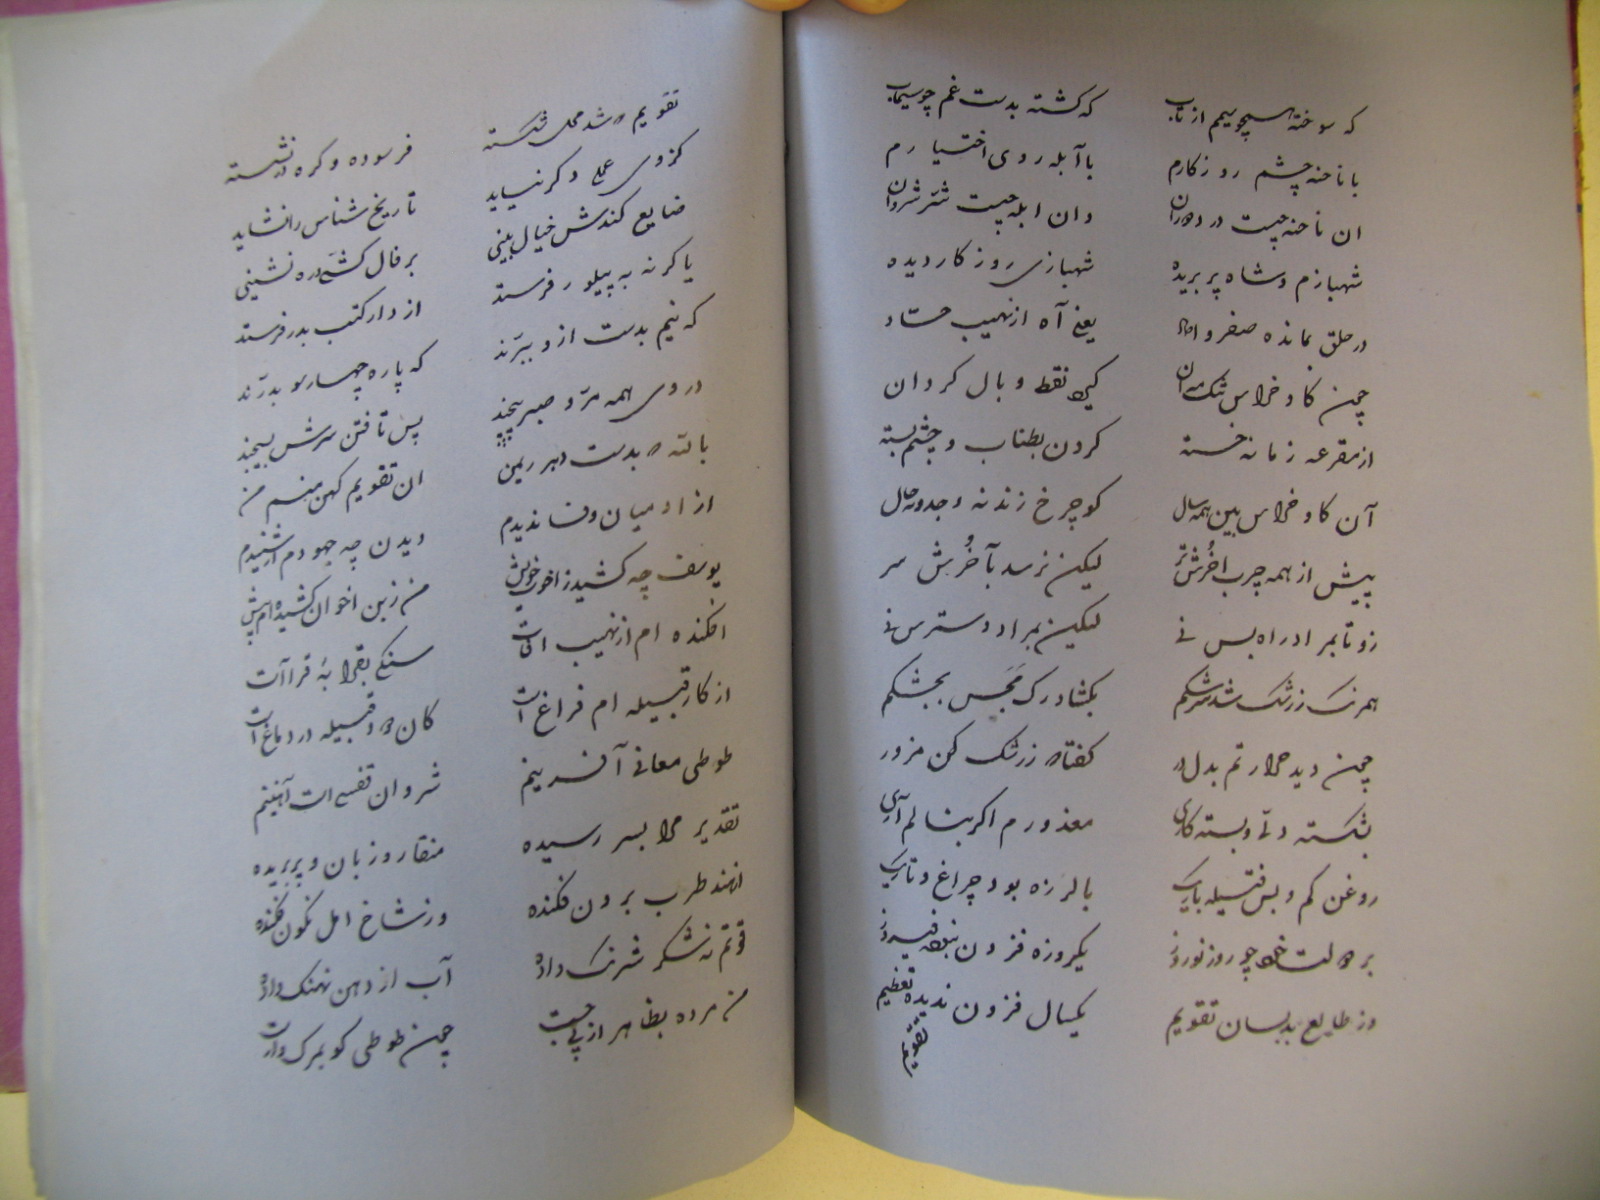 که سوخته همچو سیمم از تاب که کشته بدست غم چو سیماب
با ناخنه چشم روزکارم با آبله روی اختیارم
ان ناخنه چیست در دوران وان ابله چیست شر شروان
شهبازم و شاه پر بریده شهبازی روزکار دیده
در حلق بمانده صفر و یعنی آه از نهیب حساد
چون کاو خراس تنک میدان کی نقط و بال کردان
از مقرعه زمانه خسته کردن بطناب و چشم بسته
آن کاو خراس بین همه سال کو چرخ زند نه وجد و نه حال
پیش از همه چرب اخرش تر لیکن نرسد بآخرش سر
زو تا بمراد راه بس نی لیکن بمراد دسترس نی
همرنک زرشک شد سرشکم بکشاد رک مجس بجشکم
چون دید حرارتم بدل در کفتا ز زرشک کن مزور
بشکسته دلی و بسته کاری معذورم اکر بنالم آری
روغن کم و بس فتیله باریک با لرزه بود چراغ و تاریک
بر دولت خود چو روز نوروز یکروزه فزون نبوده فیروز
وز طالع بد بسان تقویم یکسال فزون ندیده تعظیم
تقویم
تقویم که شد محل شکسته فرسوده و کرد بر نشسته
کز وی عملی دکر نیاید تاریخ شناس را نشاید
ضایع کندش خیال بینی بر فال کشی دره نشینی
یا کر نه به پیلور فرستد از دار کتب بدر فرستد
که نیم بدست ازو ببرند که پاره چهار سو بدرند
در وی همه مر و صبر پیچند پس تافتن سرش بپیچند
بالله که بدست دهر ریمن ان تقویم کهن منم من
از ادمیان وفا ندیدم دیدن چه بود هم از شنیدم
یوسف چه کشید ز اخوت خویش من زین اخوان کشیده ام بیش
افکنده ام از نهیب افات سنکی بقرابه قراآت
از کار قبیله ام فراغ است کان دو قبیله در دماغ است
طوطی معانی آفرینم شروان قفسی است آهنینم
تقدیر مرا بسر رسیده منقار و زبان و پر بریده
از هند طرب برون فکنده وز شاخ امل نکون فکنده
قوتم نه شکر شرنک داده آب از دهن نهنک داده
من مرده بظاهر از پی جست چون طوطی کو بمرک وارست